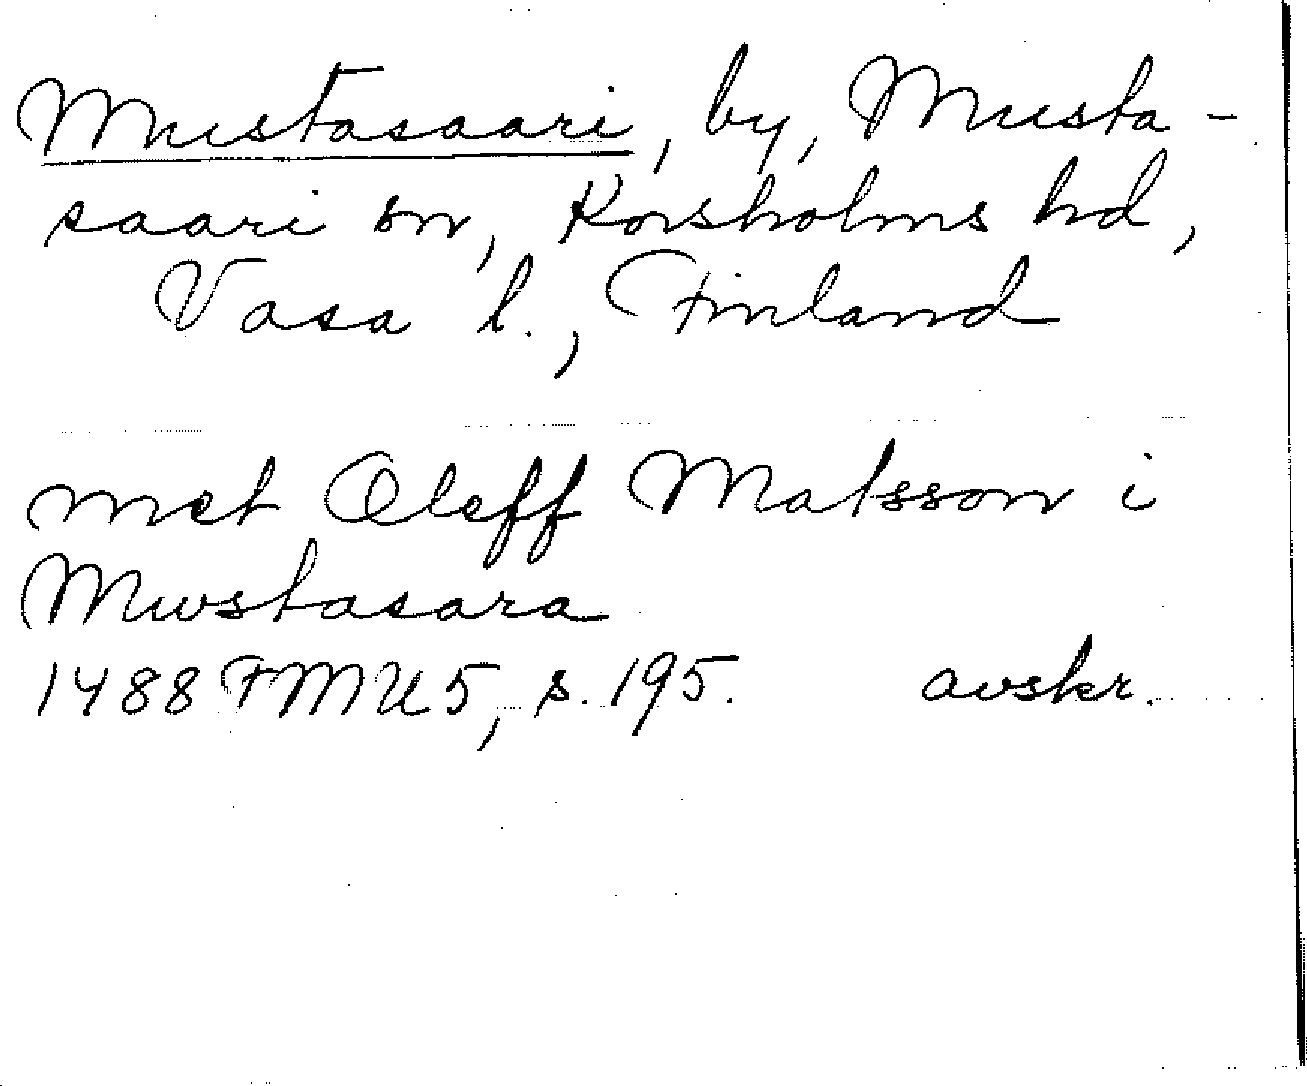 Mustasaari, by, Musta-
saari sn, Korsholms hd,
Vasa l., Finland
met Oleff Matsson i
Mwstasara
1488 FMU 5, s. 195. avskr.